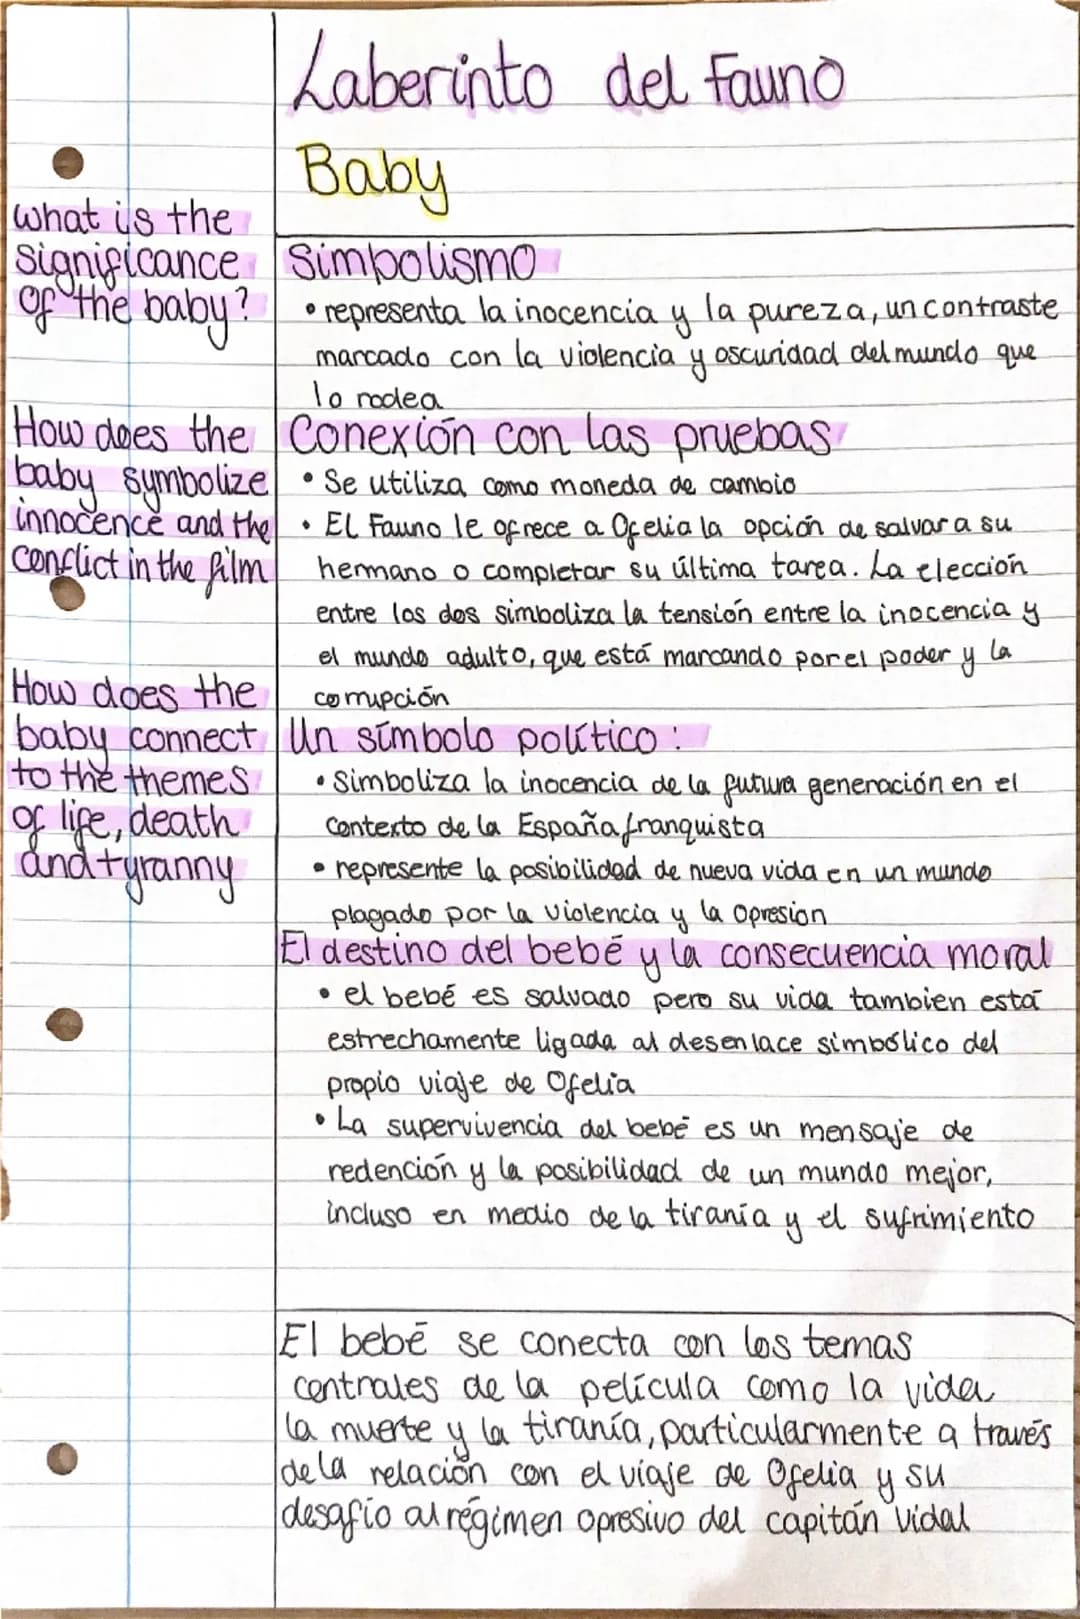 Laberinto del Fauno
Baby
what is the
significance
of the baby?
How does the
baby symbolize
innocence and the
conflict in the film
How does the
baby connect
to the themes
of life, death
and tyranny
Simbolismo
• representa la inocencia y la pureza, un contraste
marcado con la violencia y oscuridad del mundo que
lo rodea
Conexión con las pruebas
• Se utiliza como moneda de cambio
• El Fauno le ofrece a Ofelia la opción de salvar a su
hermano o completar su última tarea. La elección
entre los dos simboliza la tensión entre la inocencia y
el mundo adulto, que está marcando por el poder y la
corrupción
Un símbolo político:
• Simboliza la inocencia de la futura generación en el
contexto de la España franquista
• represente la posibilidad de nueva vida en un mundo
plagado por la violencia y la opresion
El destino del bebé y la consecuencia moral
• el bebé es salvado pero su vida tambien está
estrechamente ligada al desenlace simbólico del
propio viaje de Ofelia
• La supervivencia del bebé es un mensaje de
redención y la posibilidad de un mundo mejor,
incluso en medio de la tiranía y el sufrimiento
El bebé se conecta con los temas
centrales de la película como la vida
la muerte y la tiranía, particularmente a través
de la relación con el viaje de Ofelia y su
desafío al régimen opresivo del capitán Vidal